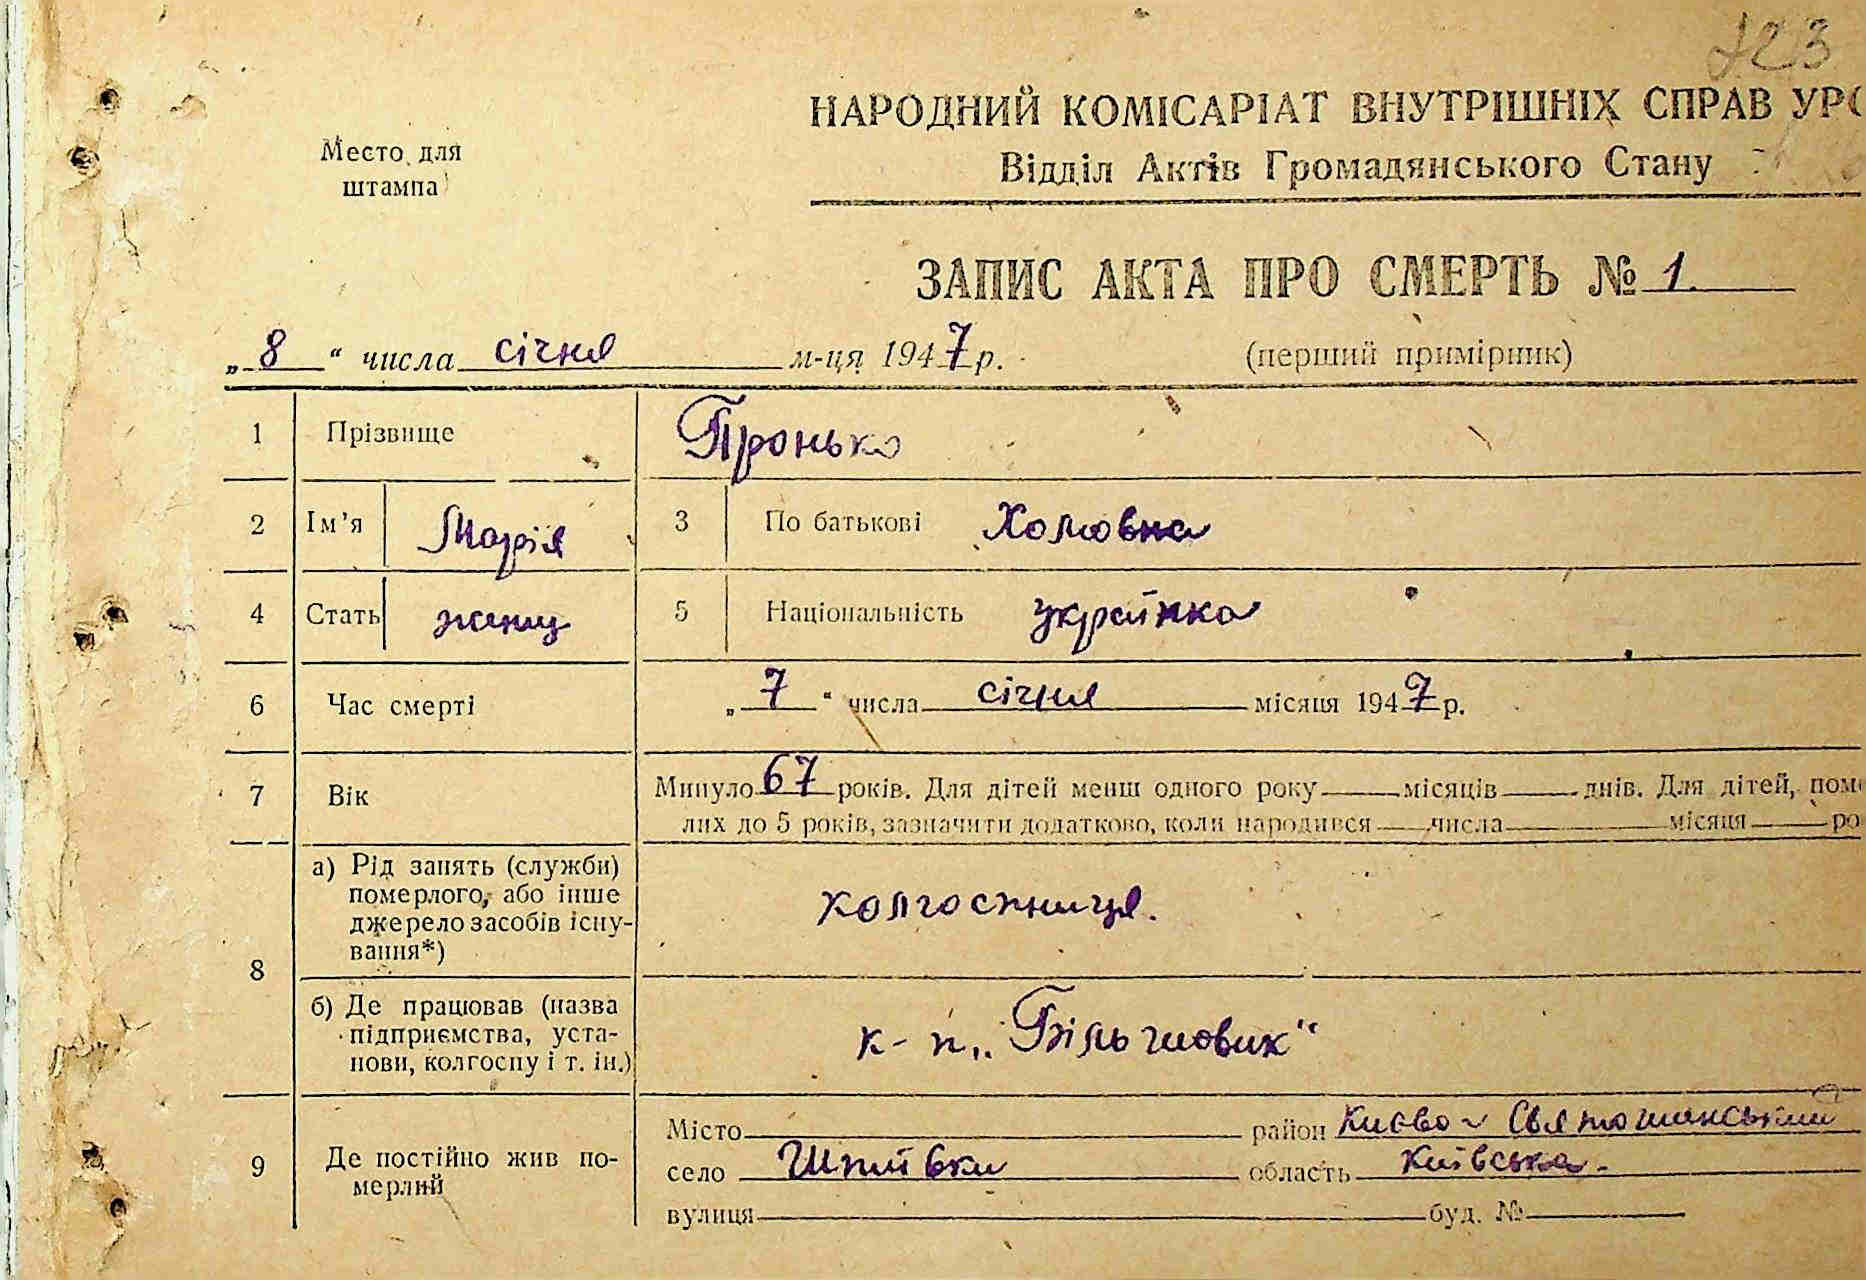 123
НАРОДНИЙ КОМІСАРІАТ ВНУТРІШНІХ СПРАВ УРС
Место для
штампа
Відділ Актів Громадянського Стану
ЗАПИС АКТА ПРО СМЕРТЬ № 1.
„8“ числа січня м-ця 1947 р. (перший примірник)
1 Прізвище Пронько
2 Ім’я Марія 3 По батькові Хомовна
4 Стать женщ 5 Національність українка
6 Час смерті „7“ числа січня місяця 1947 р.
7 Вік Минуло 67 років. Для дітей менш одного року місяців днів. Для дітей, поме
лих до 5 років, зазначити додатково, коли народився числа місяця ро
8 а) Рід занять (служби)
померлого, або інше
джерело засобів існу-
вання*) колгоспниця.
б) Де працював (назва
підприємства, уста-
нови, колгоспу і т. ін.) к-п „Більшовик“
9 Де постійно жив по-
мерлий
Місто район Києво-Святошинський
село Шпитьки область Київська.
вулиця буд. №